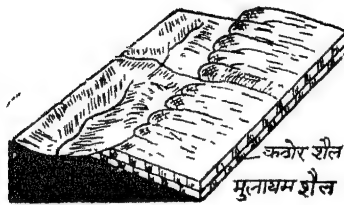 कठोर शैल
मुलायम शैल